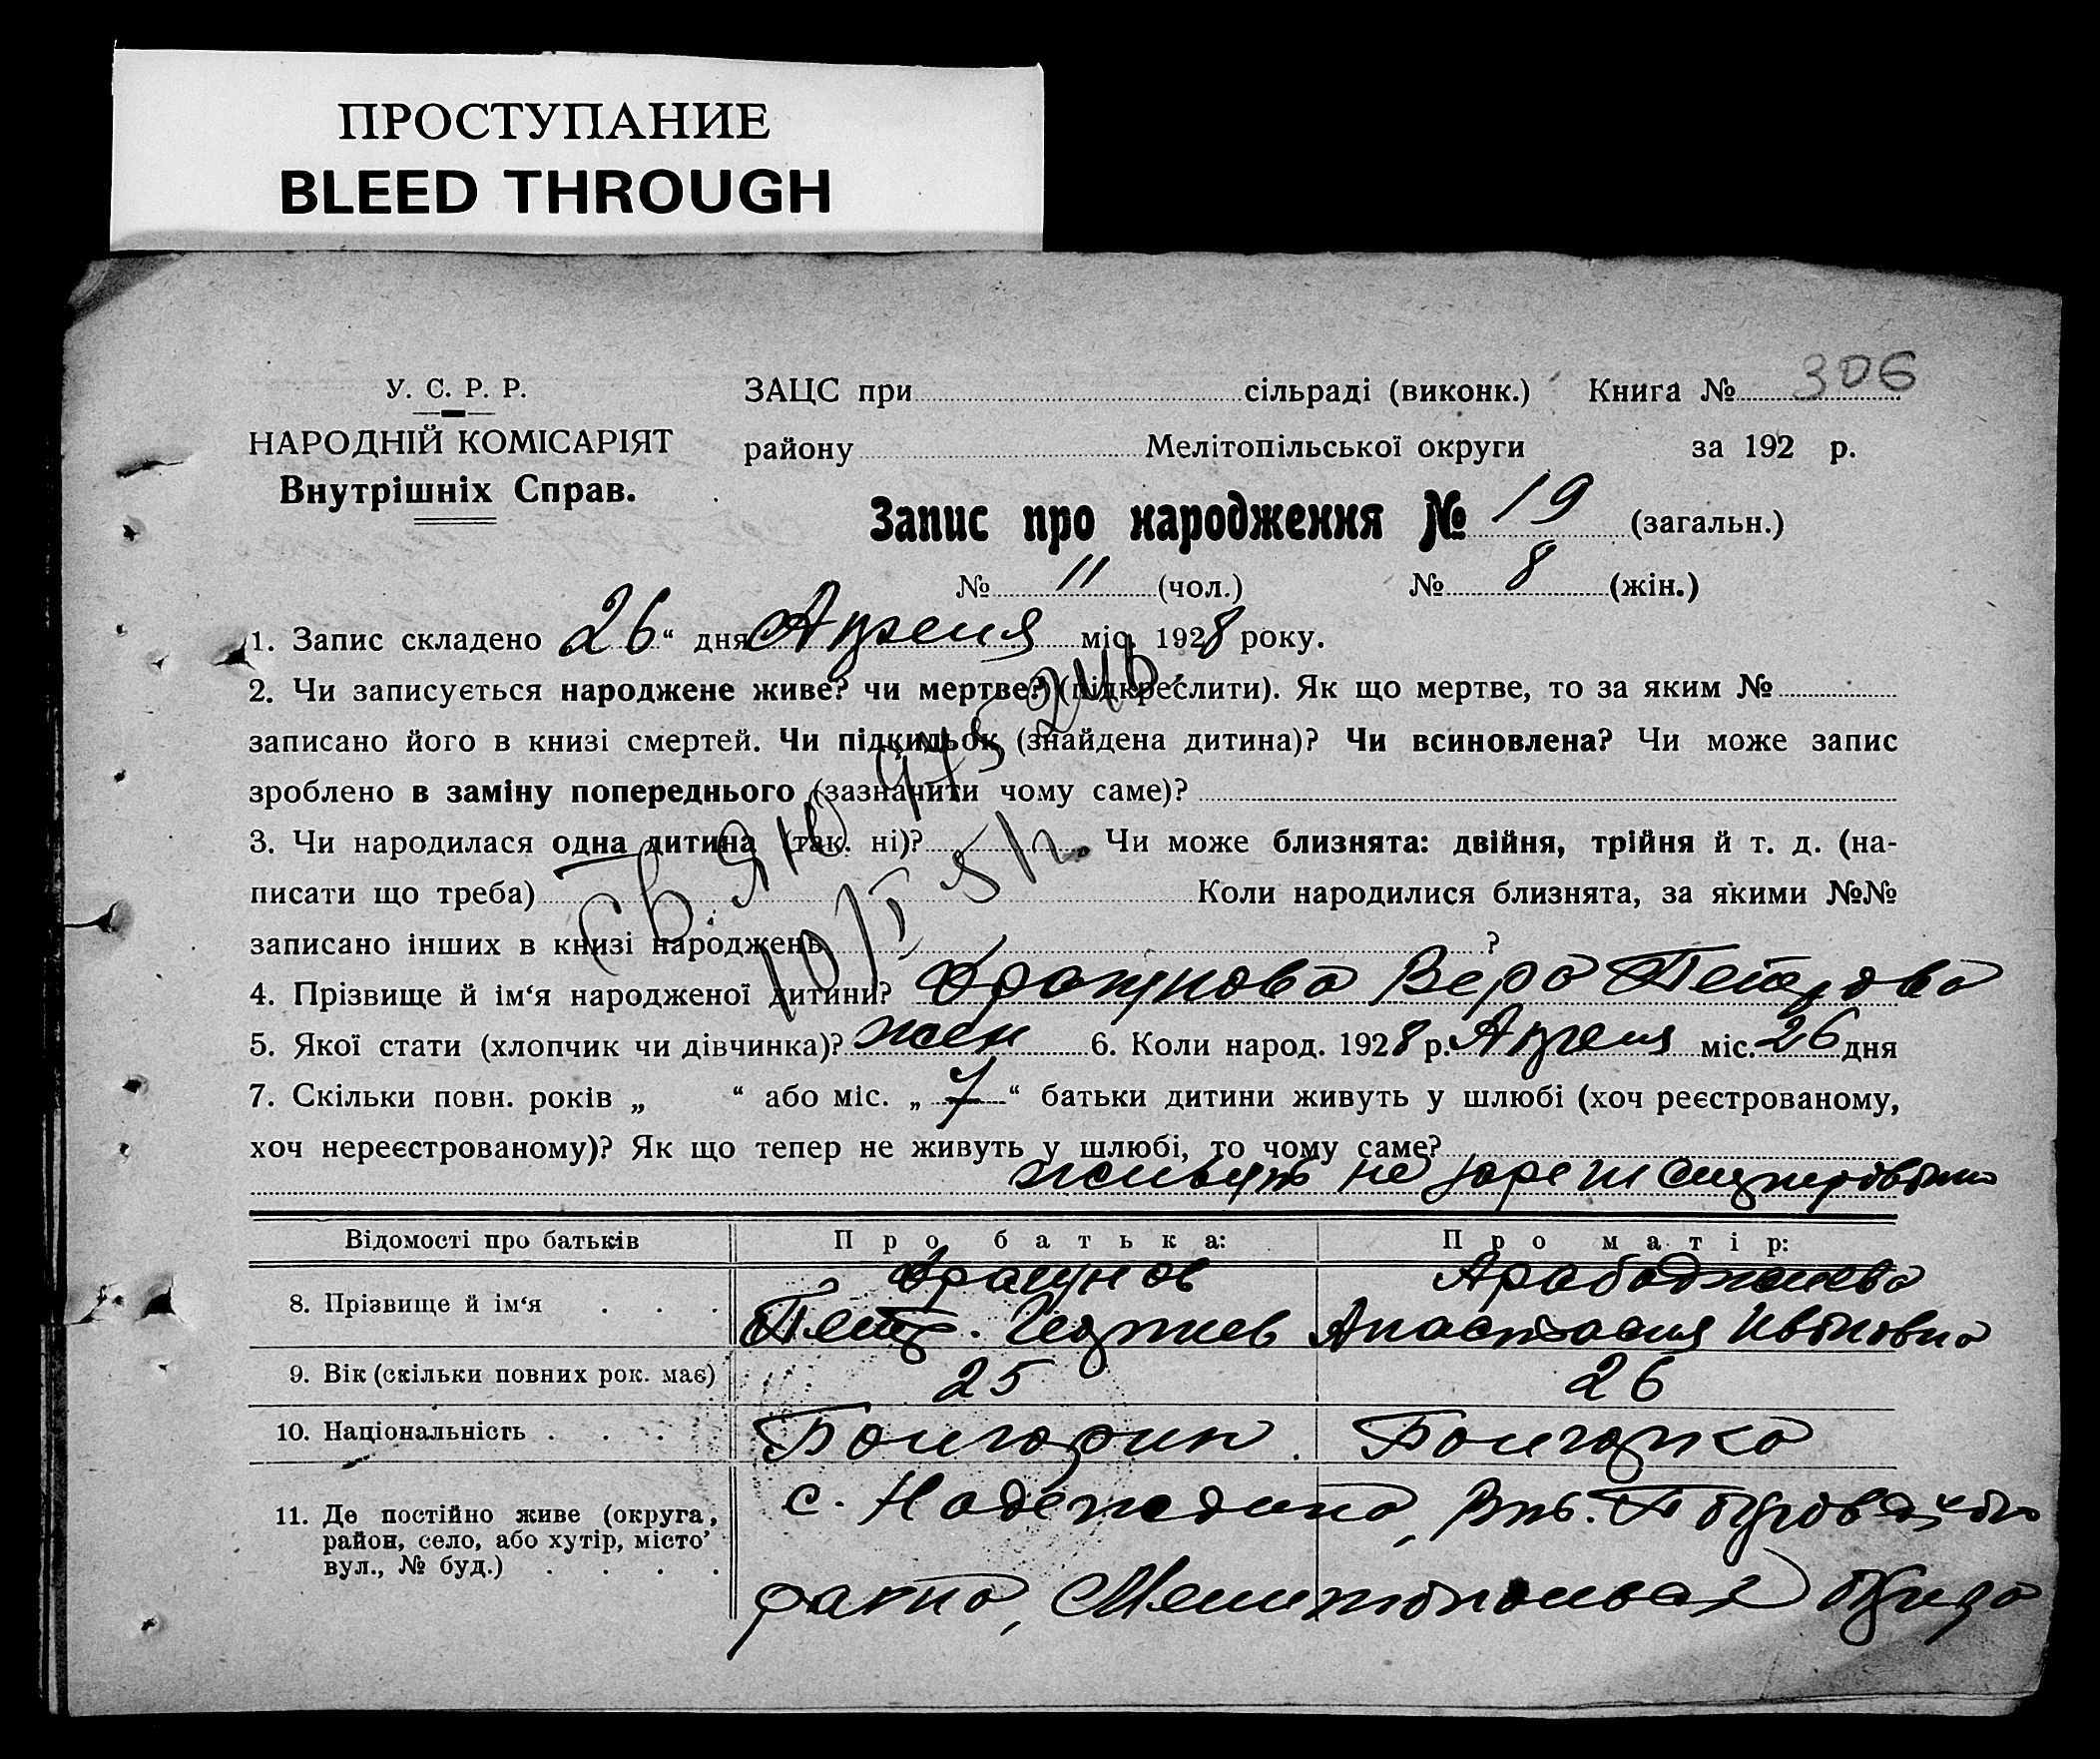 ПРОСТУПАНИЕ
BLEED THROUGH
У. С. Р. Р.
НАРОДНІЙ КОМІСАРІЯТ
Внутрішніх Справ.
ЗАЦС при сільраді (виконк.) Книга № 306
району Мелітопільської округи за 192 р.
Запис про народження № 19 (загальн.)
№ 11 (чол.) № 8 (жін.)
1. Запис складено 26 “ дня Апреля міс. 1928 року.
2. Чи записується народжене живе? чи мертве? (підкреслити). Як що мертве, то за яким №
записано його в книзі смертей. Чи підкидьок (знайдена дитина)? Чи всиновлена? Чи може запис
зроблено в заміну попереднього (зазначити чому саме)?
3. Чи народилася одна дитина (так. ні)? Чи може близнята: двійня, трійня й т. д. (на-
писати що треба) Коли народилися близнята, за якими №№
записано інших в книзі народжень ?
4. Прізвище й ім‘я народженої дитини? Вера Петрова
5. Якої стати (хлопчик чи дівчинка)? жен 6. Коли народ. 1928 р. Апреля міс. 26 дня
7. Скільки повн. років „ “ або міс. „ 7 “ батьки дитини живуть у шлюбі (хоч реєстрованому,
хоч нереєстрованому)? Як що тепер не живуть у шлюбі, то чому саме?
живуть не
Відомості про батьків Про батька: Про матір:
8. Прізвище й ім‘я . . .
Арабаджиева
Петр. Анастасия Ивановна
9. Вік (скільки повних рок. має) 25 26
10. Національність . . . Болгарин Болгарка
11. Де постійно живе (округа, район, село, або хутір, місто’ вул., № буд.) . . . .
с. Надеждино,
райно,